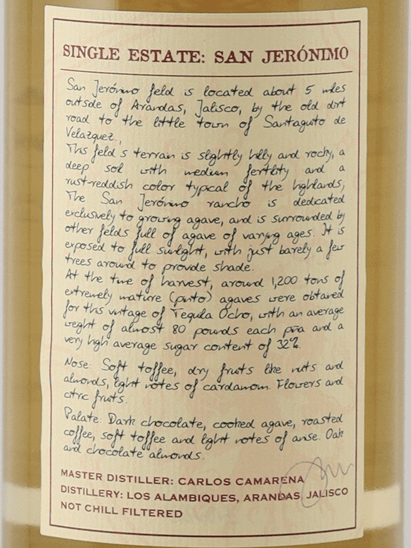 SINGLE ESTATE: SAN JERÓNIMO
San Jerónimo field is located about 5 miles
outside of Arandas, Jalisco, by the old dirt
road to the little town of Santaguito de
Velazquez.,
This field s terrain is slightly hilly and rocky, a
deep soil with medium fertility and a
rust-reddish color typical of the highlands,
The San Jerónimo rancho is dedicated
exclusively to growing agave, and is surrounded by
other fields full of agave of varying ages. It is
exposed to full sunlight, with just barely a few
trees around to provide shade.
At the time of harvest, around 1,200 tons of
extremely mature (pinto) agaves were obtained
for this vintage of Tequila Ocho, with an average
weight of almost 80 pounds each piña and a
very high average sugar content of 32%.
Nose: Soft toffee, dry fruits like nuts and
almonds, light notes of cardamom. Flowers and
citric fruits.
Palate: Dark chocolate, cooked agave, roasted
coffee, soft toffee and light notes of anise. Oak
and chocolate almonds.
MASTER DISTILLER: CARLOS CAMARENA
DISTILLERY: LOS ALAMBIQUES, ARANDAS, JALISCO
NOT CHILL FILTERED